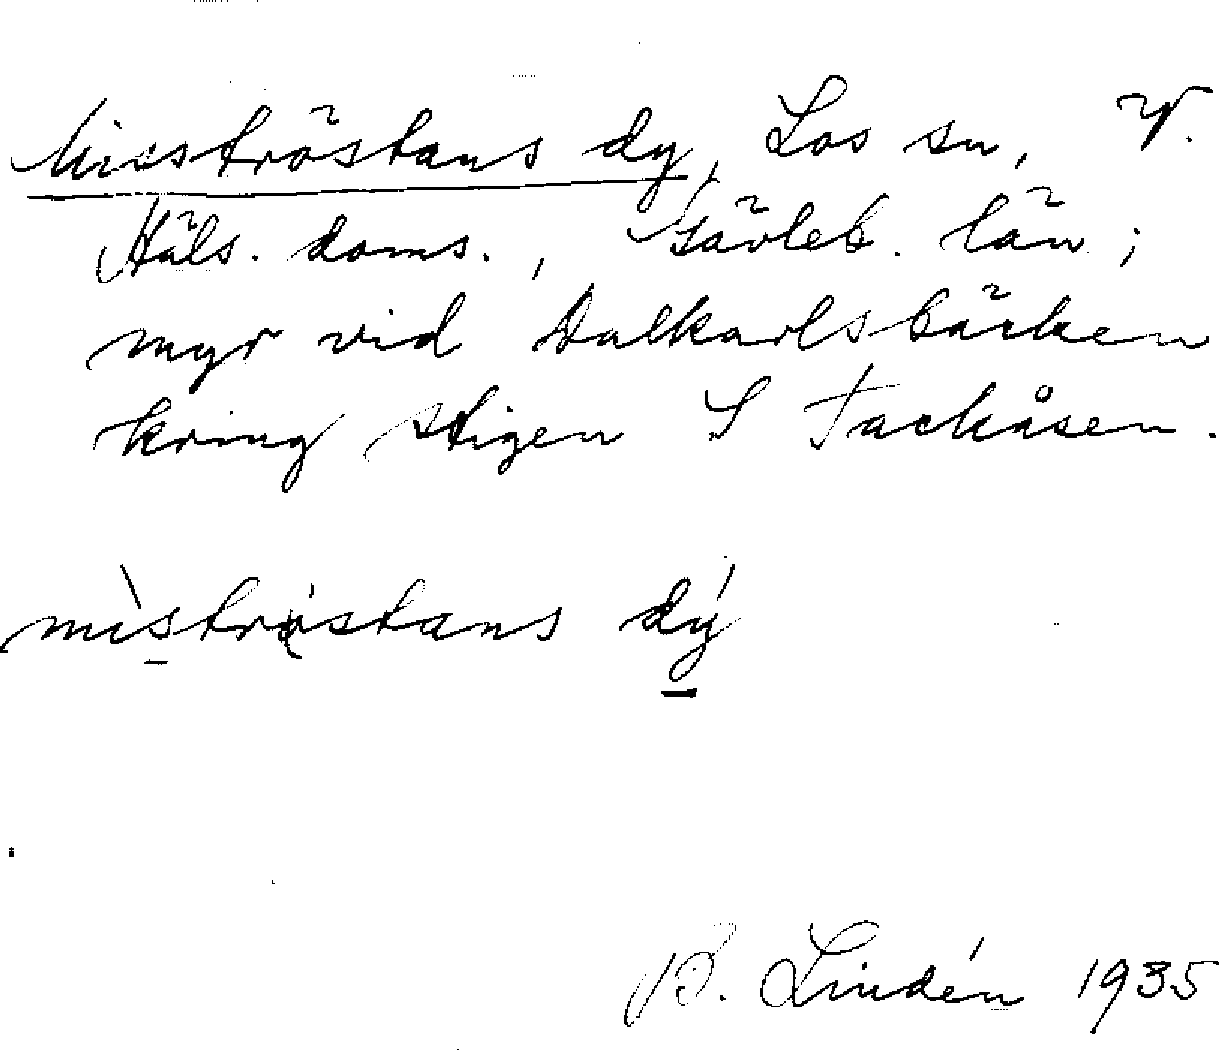 Misströstans dy, Los sn, V.
Häls. doms., Gävleb. län;
myr vid Dalkarlsbäcken
kring stigen S Tackåsen.
mìströstans dý
B. Lindén 1935